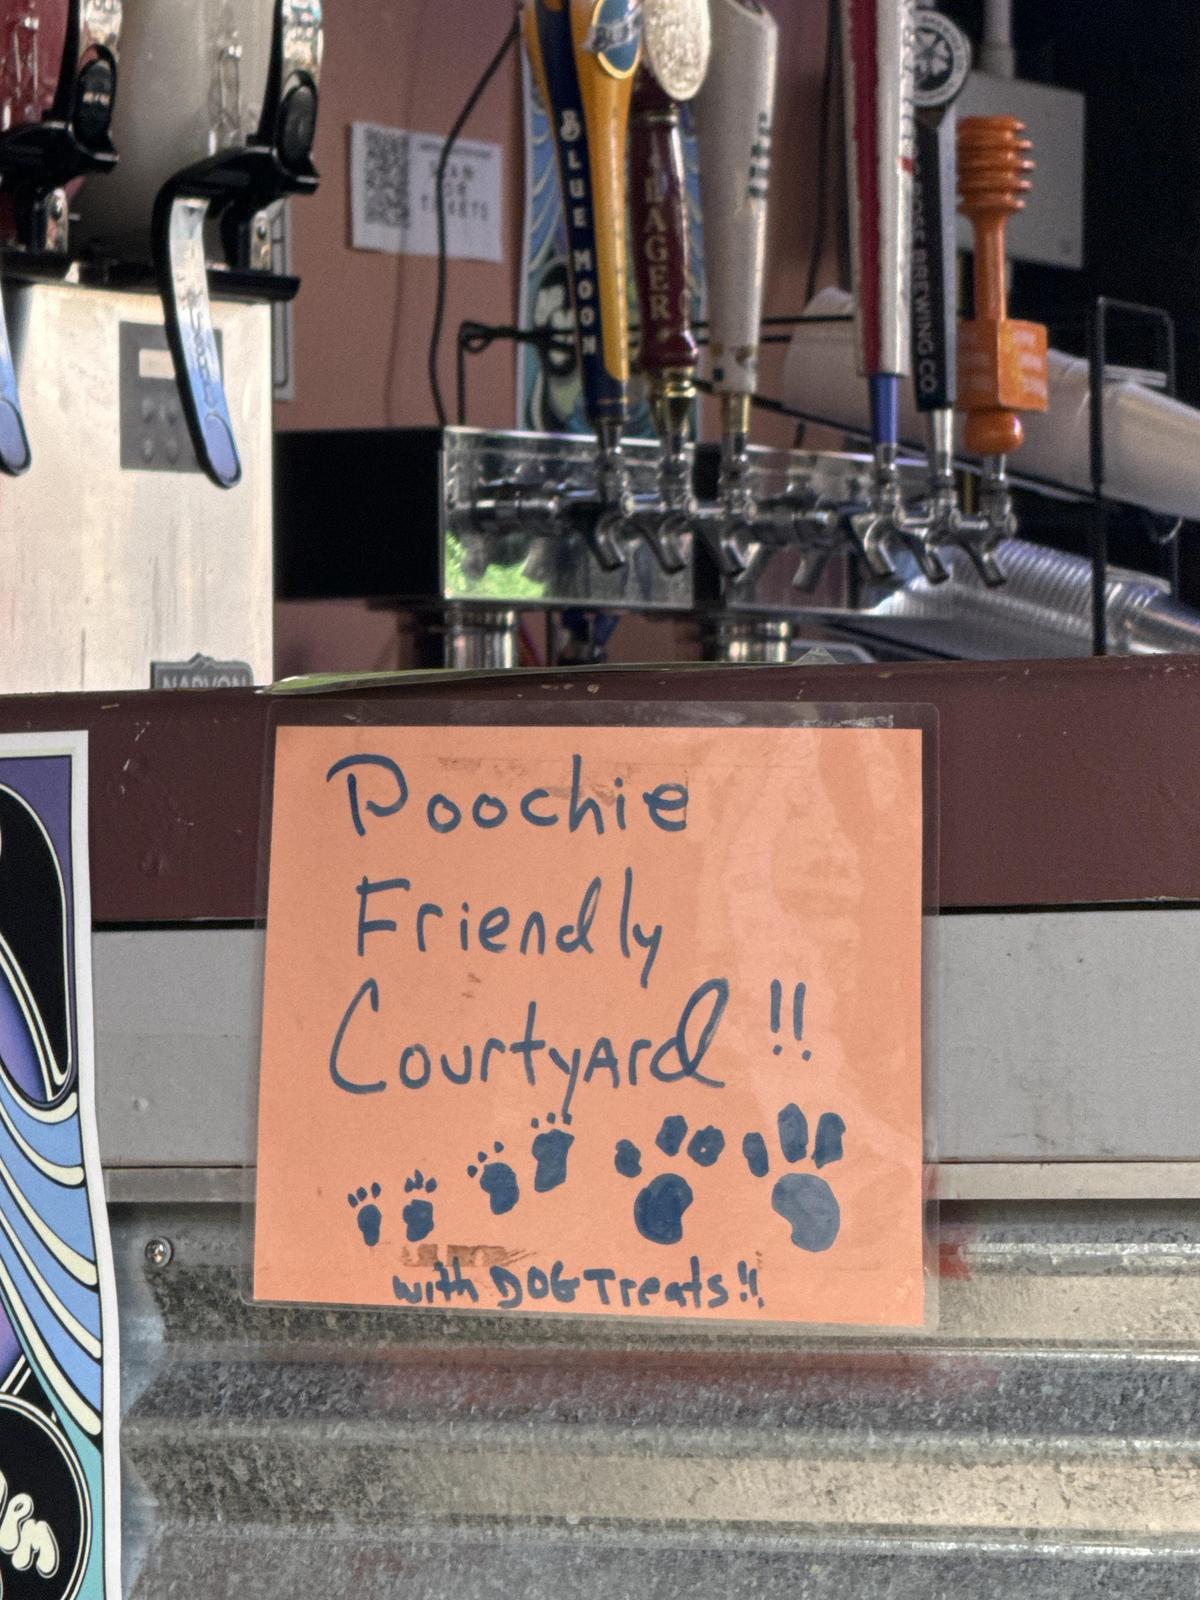 SCAN
FOR
TICKETS
BLUE MOON
LAGER
ROSE BREWING CO
NARVON
Poochie
Friendly
Courtyard !!
with DOG Treats!!